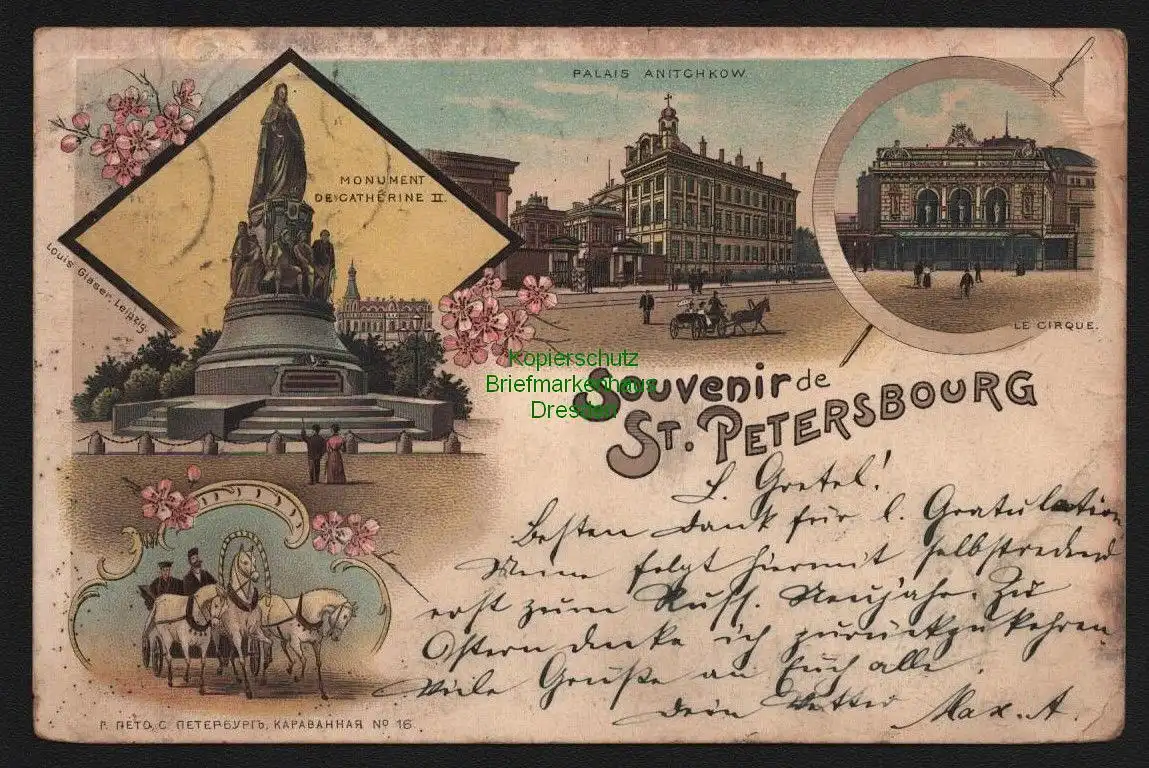 PALAIS ANITCHKOW
MONUMENT
DE CATHÉRINE II.
Louis Glaser Leipzig
LE CIRQUE.
Kopierschutz
Briefmarkenhaus
Dresden
Souvenir de
St. Petersbourg
L. Gretel!
Besten Dank für l. Gratulation
Meine folgt hiermit selbstredend
erst zum Russ. Neujahr. Zu
Ostern denke ich zurückzukehren.
Viele Grüße an Euch alle
Dein Vetter Max. A.
Г. ПЕТО, С. ПЕТЕРБУРГЪ, КАРАВАННАЯ № 16.